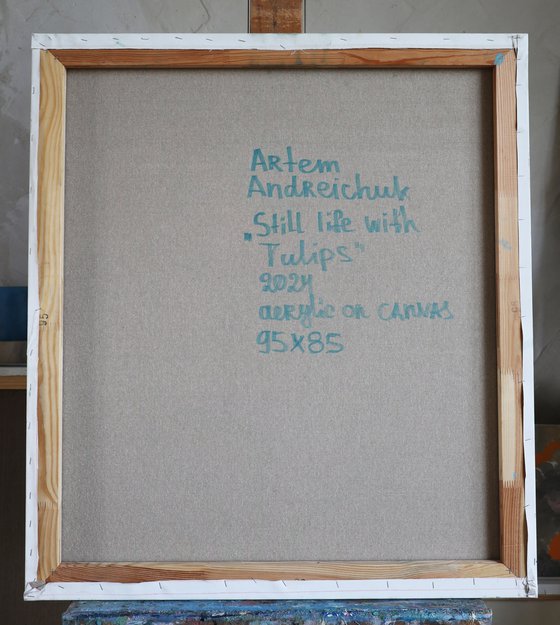 Artem
Andreichuk
„Still life with
Tulips"
2024
acrylic on CANVAS
95x85
95